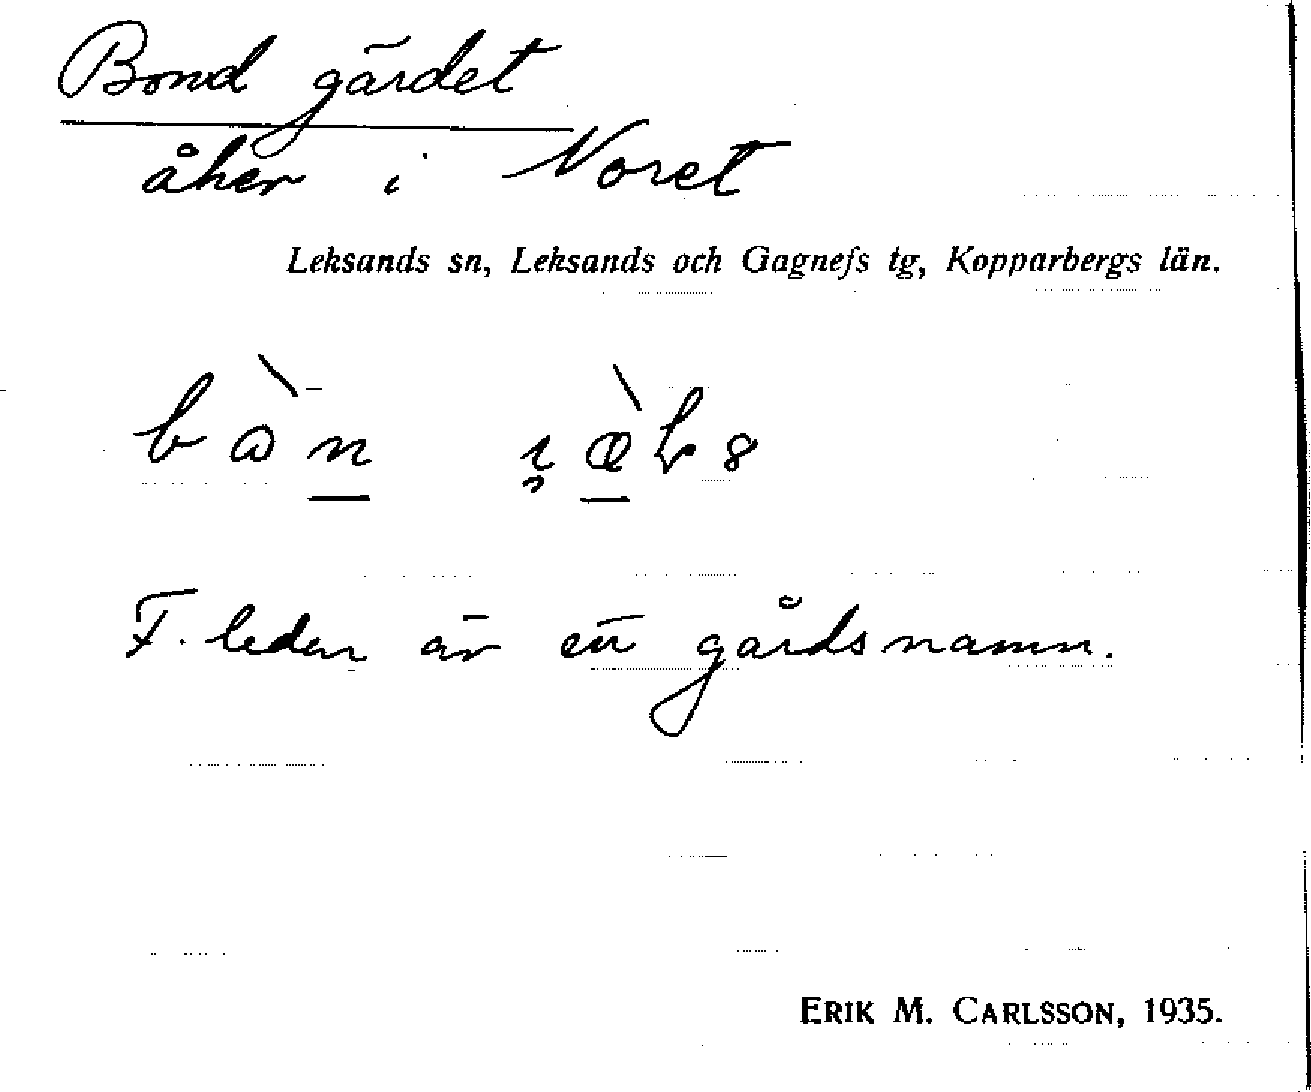 Bondgärdet
åker i Noret
Leksands sn, Leksands och Gagnefs tg, Kopparbergs län.
F. leden är ett gårdsnamn.
ERIK M. CARLSSON, 1935.